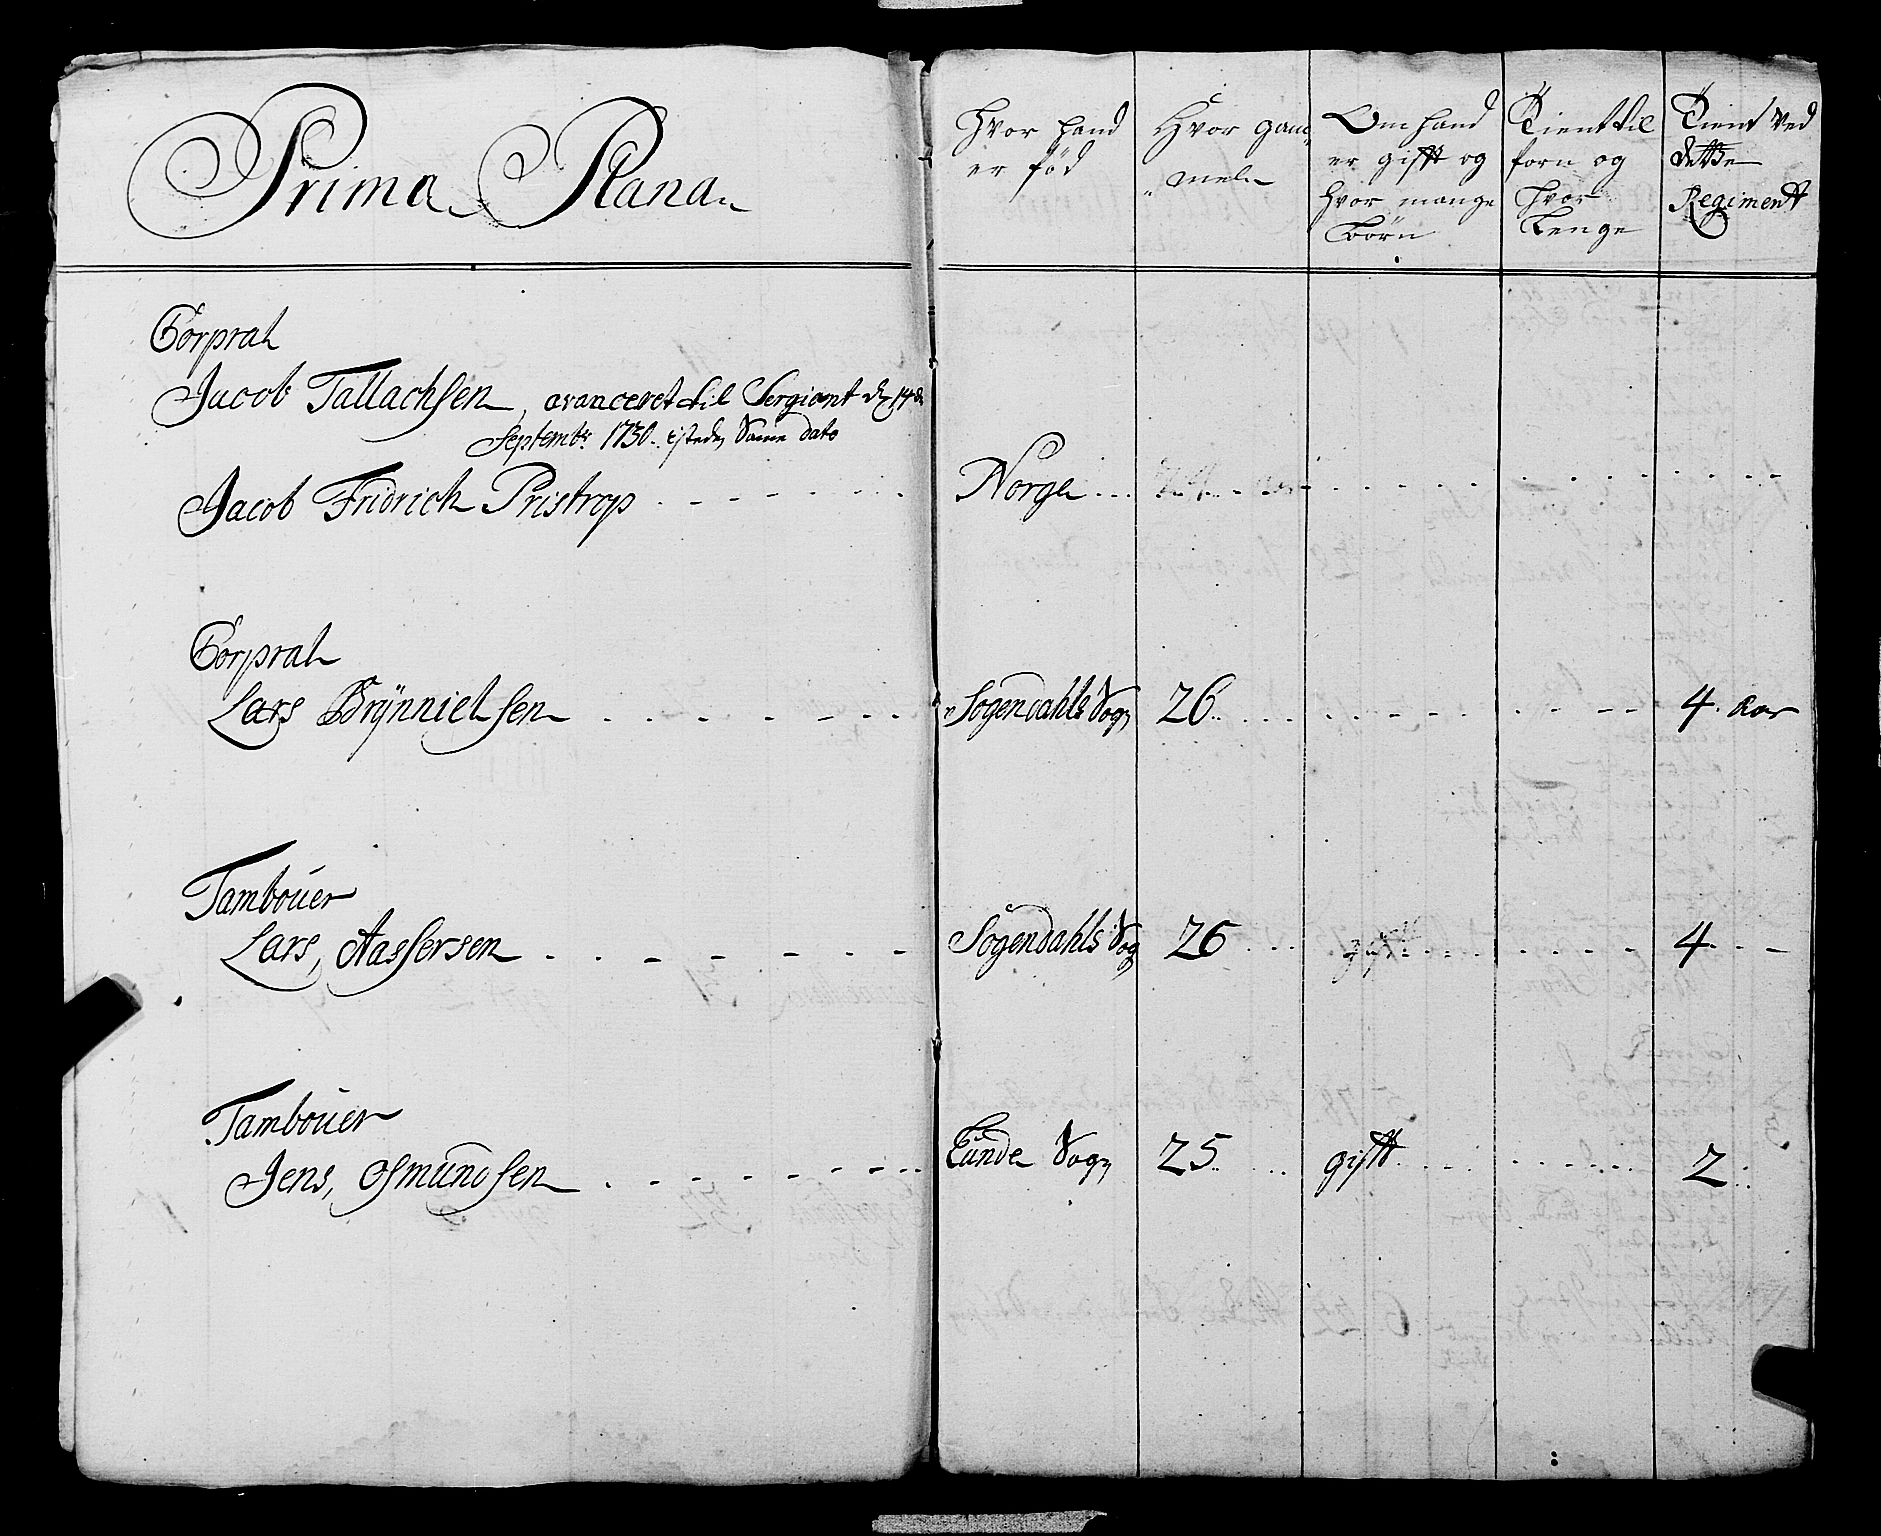 Prima Plana
Hvor hand er föd
Hvor gam„ „mel
Om hand er gifft og hvor mange börn
Tient til forn og hvor Lenge
Tient ved dette Regiment
Corpral
Jacob Tallachsen, avanceret til Sergiant d 14de
Septembr: 1730. isteden Same dato
Jacob Fridrich Pristrop Norge
Corpral
Lars Brÿnnielsen Sogendahls Sogn 26 4 Aar
Tambouer
Lars, Aassersen Sogendahls Sogn 26 gift 4
Tambouer
Jens, Osmundsen Lunde Sogn 25 gifft 2